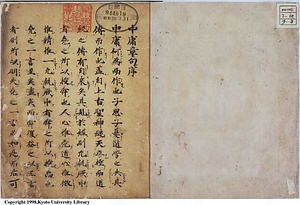 中庸章句序
中庸何為而作也子思子憂道學之失其
傳而作也盖自上古聖神繼天立極而道
統之傳有自來矣其見於經則允執厥中
者堯之所以授舜也人心惟危道心惟微
惟精惟一允執厥中者舜之所以授禹也
堯之一言至矣盡矣而舜復益之以三言
者則所以明夫堯之一言必如是而後可
Copyright 1998, Kyoto University Library